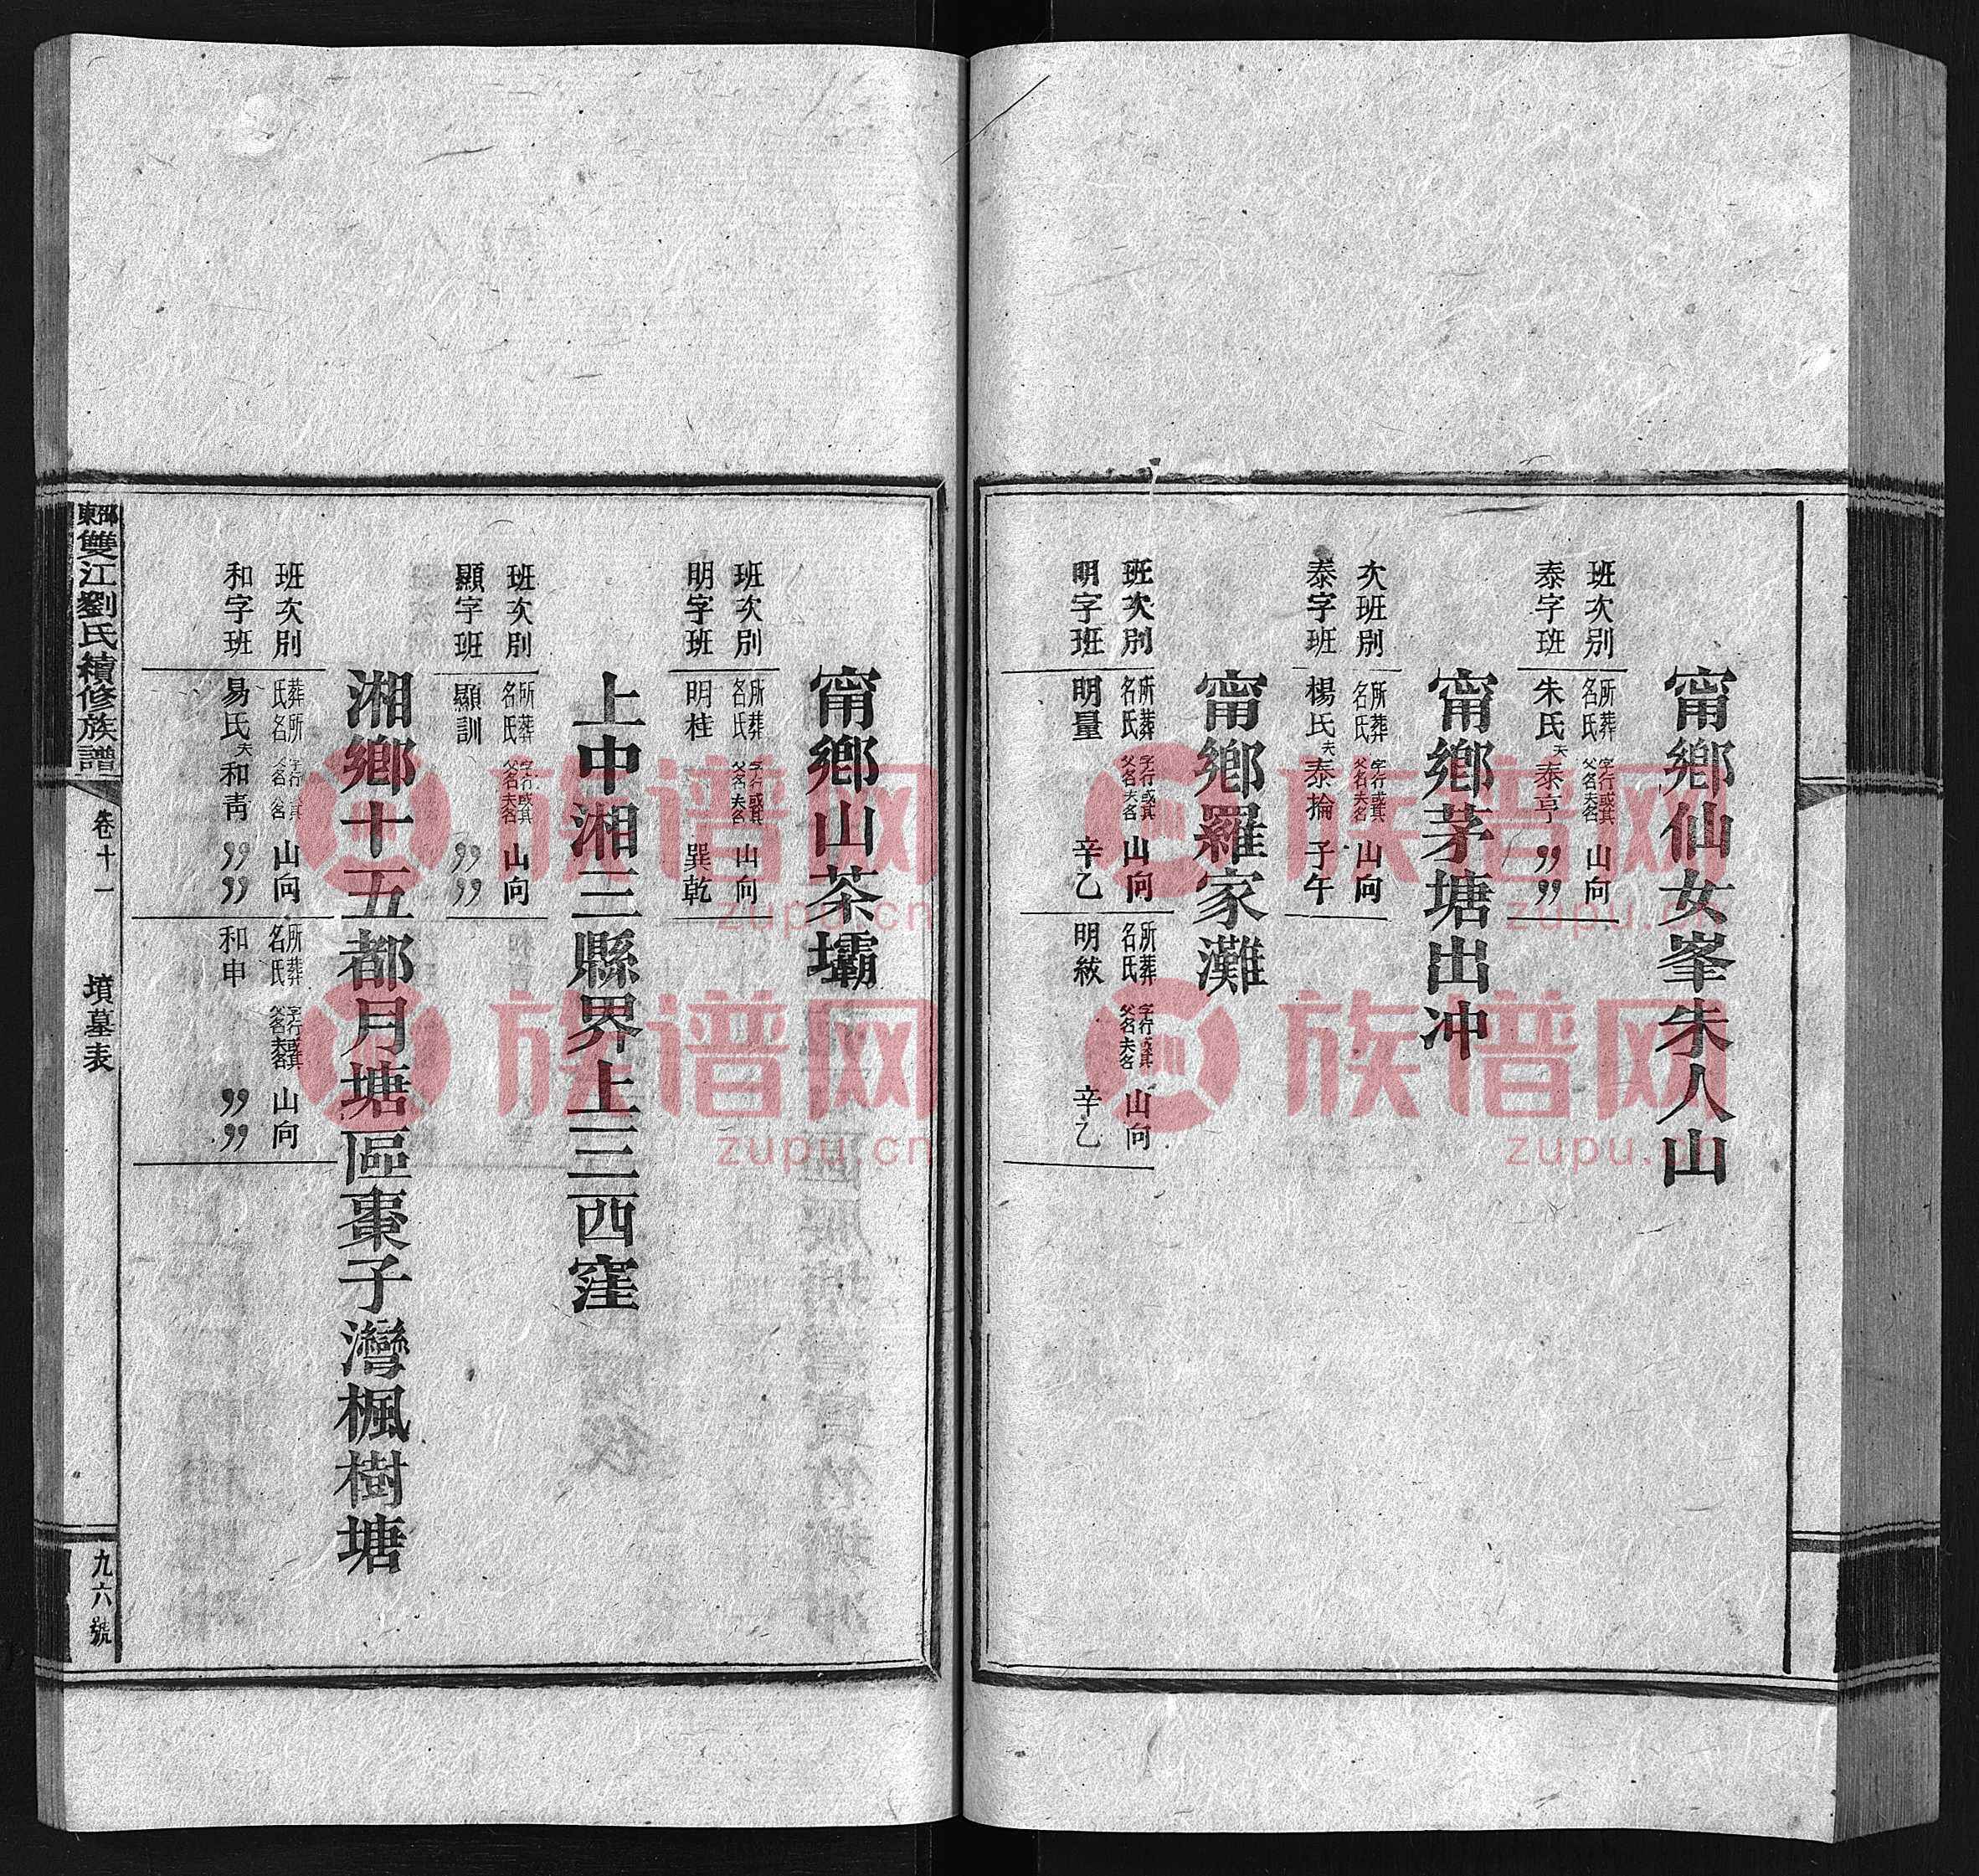 甯鄉仙女峯朱人山
班次別 所葬名氏 字行或其父名夫名 山向
泰字班 朱氏 夫泰亨 〃〃
甯鄉茅塘出冲
次班別 所葬名氏 字行或其父名夫名 山向
泰字班 楊氏 夫泰掄 子午
甯鄉羅家灘
班次別 所葬名氏 字行或其父名夫名 山向 所葬名氏 字行或其父名夫名 山向
明字班 明量 辛乙 明絨 辛乙
甯鄉山茶壩
班次別 所葬名氏 字行或其父名夫名 山向
明字班 明桂 巽乾
上中湘三縣界上三西窪
班次別 所葬名氏 字行或其父名夫名 山向
顯字班 顯訓 〃〃
湘鄉十五都月塘區棗子灣楓樹塘
班次別 葬所氏名 字行或其父名夫名 山向 所葬名氏 字行或其父名夫名 山向
和字班 易氏 夫和靑 〃〃 和申 〃〃
邵東雙江劉氏續修族譜
卷十一
墳墓表
九六號
族谱网
zupu.cn
族谱网
zupu.cn
族谱网
zupu.cn
族谱网
zupu.cn